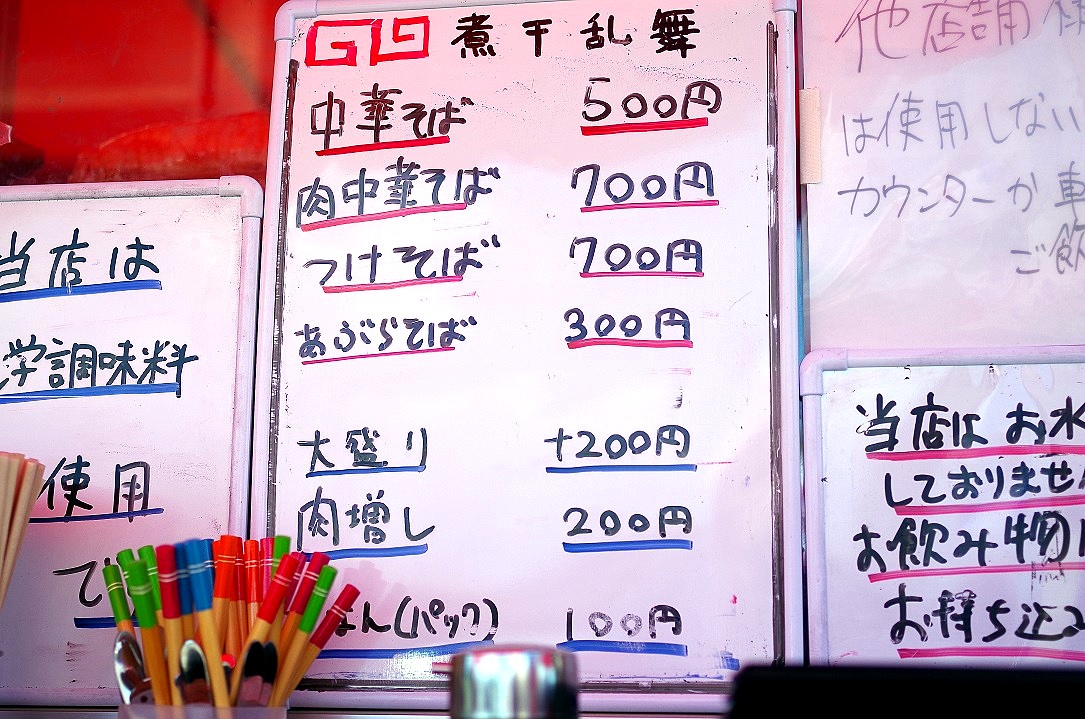 煮干乱舞
中華そば 500円
肉中華そば 700円
つけそば 700円
あぶらそば 300円
大盛り +200円
肉増し 200円
はん(パック) 100円
当店は
学調味料
使用
で
他店詰用
は使用しない
カウンターか車
ご飲
当店はお水
しておりません
お飲み物
お持ち込